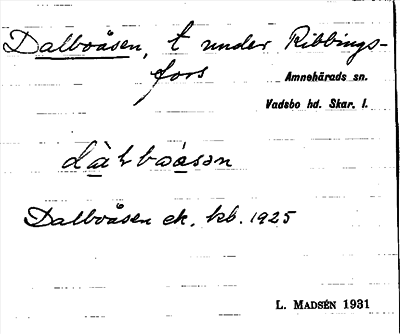 Dalboåsen, t under Ribbings-
fors
Amnehärads sn.
Vadsbo hd. Skar. l.
dàlboåsən
Dalboåsen ek. kb. 1925
L. MADSÉN 1931